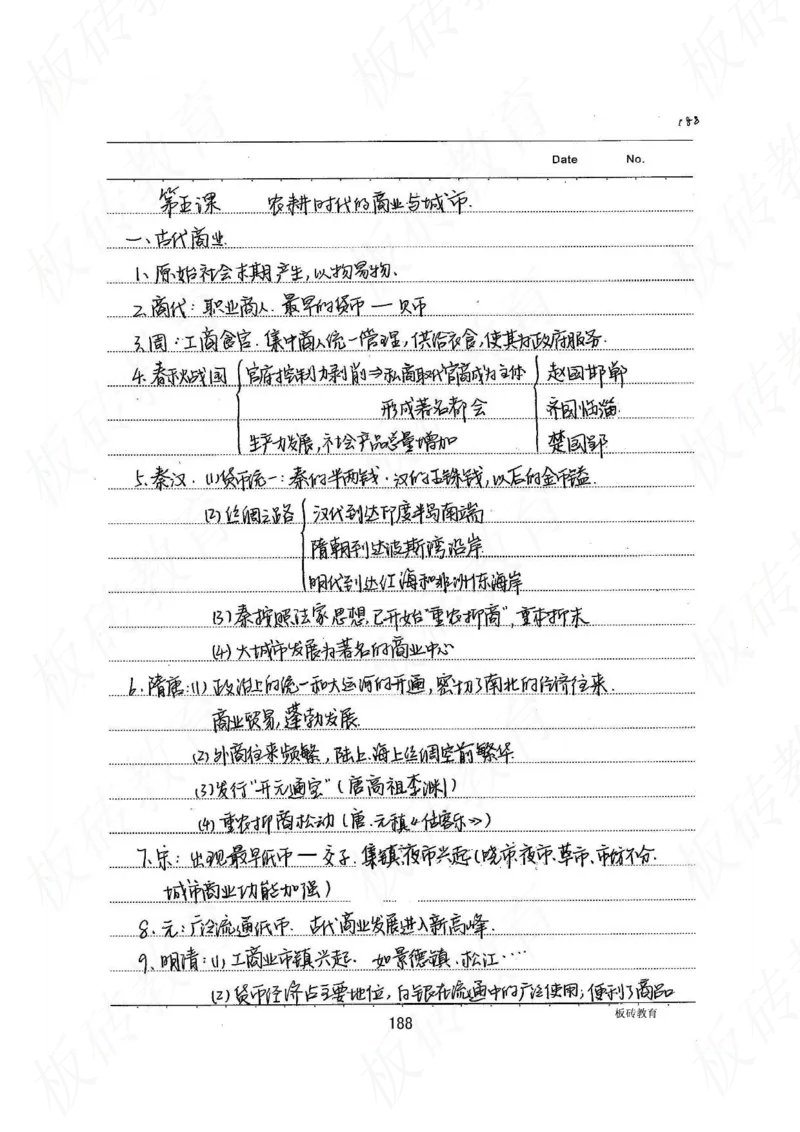 188
Date No.
第五课 农耕时代的商业与城市.
一、古代商业.
1、原始社会末期产生,以物易物、
2、商代:职业商人.最早的货币—贝币
3、周:工商食官.集中商人统一管理,供给衣食,使其为政府服务.
4、春秋战国 官府控制力剥削⇒私商取代官商成为主体 赵国邯郸
形成著名都会 齐国临淄.
生产力发展,社会产品总量增加 楚国郢
5、秦汉.(1)货币统一:秦的半两钱.汉的五铢钱,以后的金币镒.
(2)丝绸之路 汉代到达印度半岛南端
隋朝到达波斯湾沿岸
明代到达红海和非洲东海岸
(3)秦按照法家思想已开始"重农抑商",重本抑末
(4)大城市发展为著名的商业中心
6、隋唐:(1)政治上的统一和大运河的开通,密切了南北的经济往来.
商业贸易,蓬勃发展.
(2)外商往来频繁,陆上.海上丝绸空前繁华
(3)发行"开元通宝"(唐高祖李渊)
(4)重农抑商松动(唐.元稹《估客乐》)
7、宋:出现最早纸币—交子.集镇,夜市兴起(晓市、夜市、草市、市坊不分.
城市商业功能加强)
8、元:广泛流通纸币.古代商业发展进入新高峰.
9、明清:(1)工商业市镇兴起.如景德镇.松江····
(2)货币经济占主要地位,白银在流通中的广泛使用;便利了商品
板砖教育
188